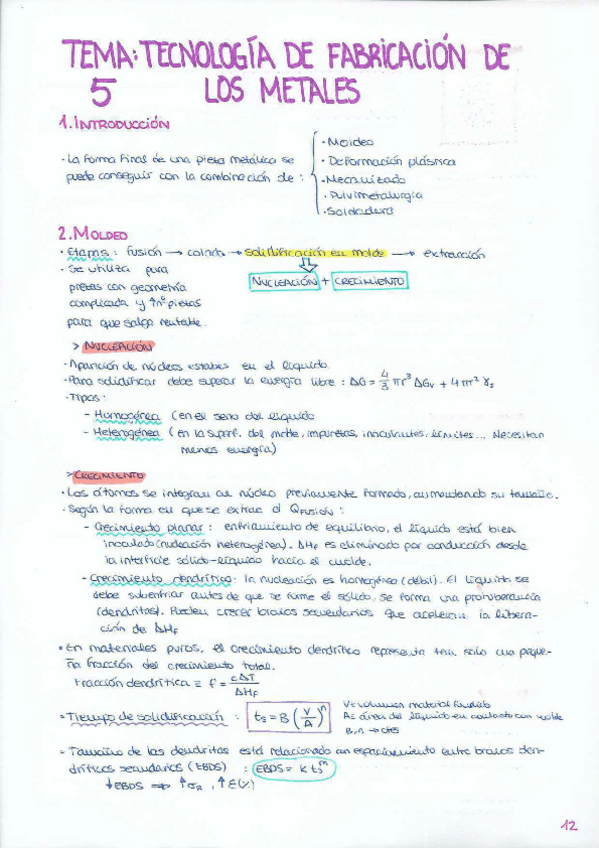 TEMA: TECNOLOGÍA DE FABRICACIÓN DE
5 LOS METALES
1. INTRODUCCIÓN
· La forma final de una pieza metálica se
puede conseguir con la combinación de :
· Moldeo
· Deformación plástica
· Mecanizado
· Pulvimetalurgia
· Soldadura
2. MOLDEO
· Etapas : fusión → colada → solidificación en molde → extracción
NUCLEACIÓN + CRECIMIENTO
· Se utiliza para
piezas con geometría
complicada y ↑nº piezas
para que salga rentable.
> NUCLEACIÓN
· Aparición de núcleos estables en el líquido.
· Para solidificar debe superar la energía libre : ΔG = 4/3 πr³ ΔGv + 4πr² γs
· Tipos :
- Homogénea (en el seno del líquido
- Heterogénea ( en la superf. del molde, impurezas, inoculantes, límites... Necesitan
menos energía)
> CRECIMIENTO
· Los átomos se integran al núcleo previamente formado, aumentando su tamaño.
· Según la forma en que se extrae el QFUSIÓN :
- Crecimiento planar : enfriamiento de equilibrio, el líquido está bien
inoculado (nucleación heterogénea). ΔHF es eliminado por conducción desde
la interficie sólido-líquido hacia el molde.
- Crecimiento dendrítico : la nucleación es homogénea (débil). El líquido se
debe subenfriar antes de que se forme el sólido, se forma una protuberancia
(dendritas). Pueden crecer brazos secundarios que aceleran la libera-
ción de ΔHF
· En materiales puros, el crecimiento dendrítico representa tan solo una peque-
ña fracción del crecimiento total.
Fracción dendrítica = f = cΔT/ΔHF
· Tiempo de solidificación : ts = B (V/A)ⁿ
V= volumen material fundido
A= área del líquido en contacto con molde
B,n → ctes
· Tamaño de las dendritas está relacionado con espaciamiento entre brazos den-
dríticos secundarios (EBDS) : EBDS = k tsᵐ
↓EBDS ⇒ ↑σR , ↑E(%)
12